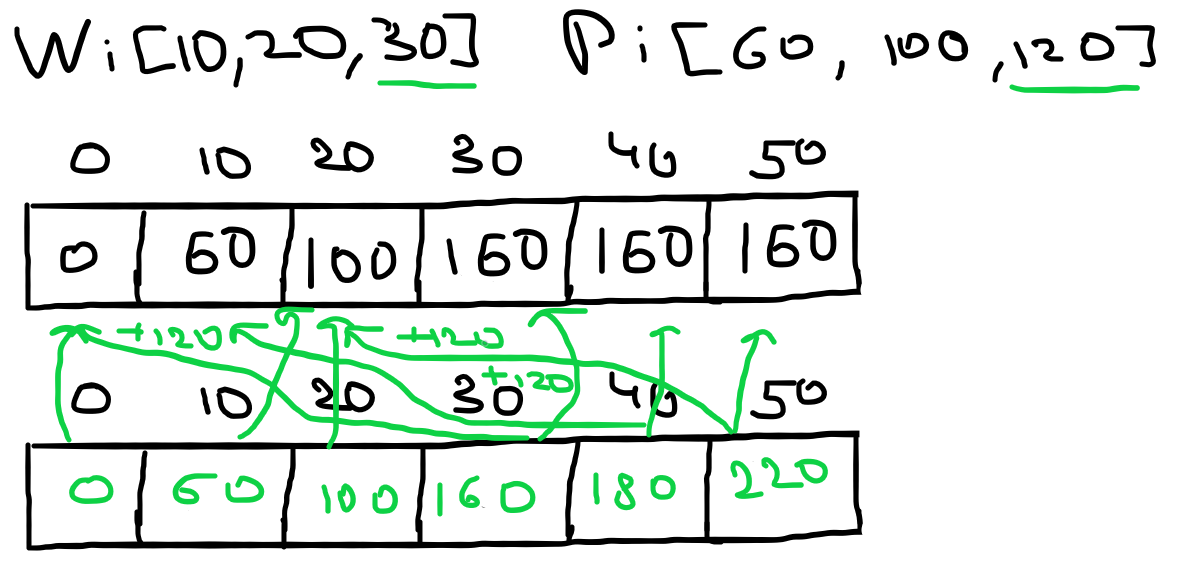 Wi[10,20,30] Pi[60, 100,120]
0 10 20 30 40 50
0 60 100 160 160 160
+120 +120
+120
0 10 20 30 40 50
0 60 100 160 180 220